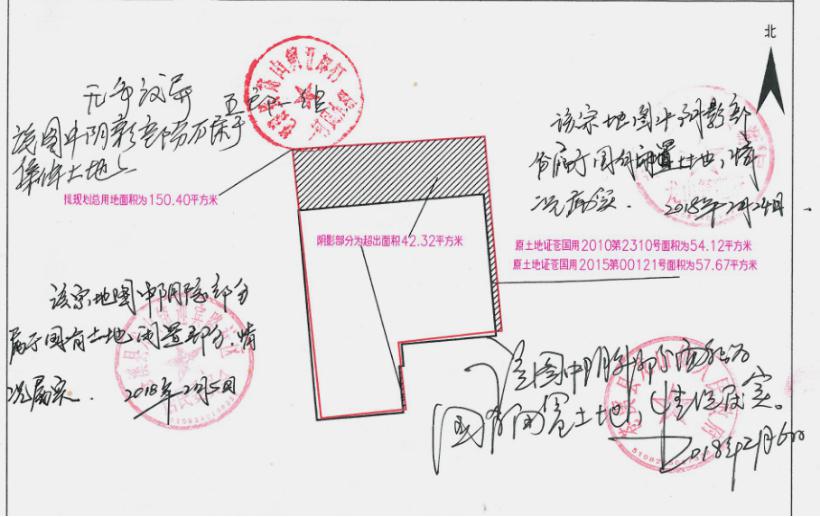 北
无争议异
五郎一组
该图中阴影部分不属于
集体土地
拟规划总用地面积为150.40平方米
该宗地图中阴影部
份属于国有闲置土地,情
况属实. 2018年2月24日.
阴影部分为超出面积42.32平方米
原土地证苍国用2010第2310号面积为54.12平方米
原土地证苍国用2015第00121号面积为57.67平方米
该宗地图中阴影部分
属于国有土地闲置部分,情
况属实. 2018年2月5日
该图中阴影部分面积为
国有闲置土地,情况属实。
2018年2月6日